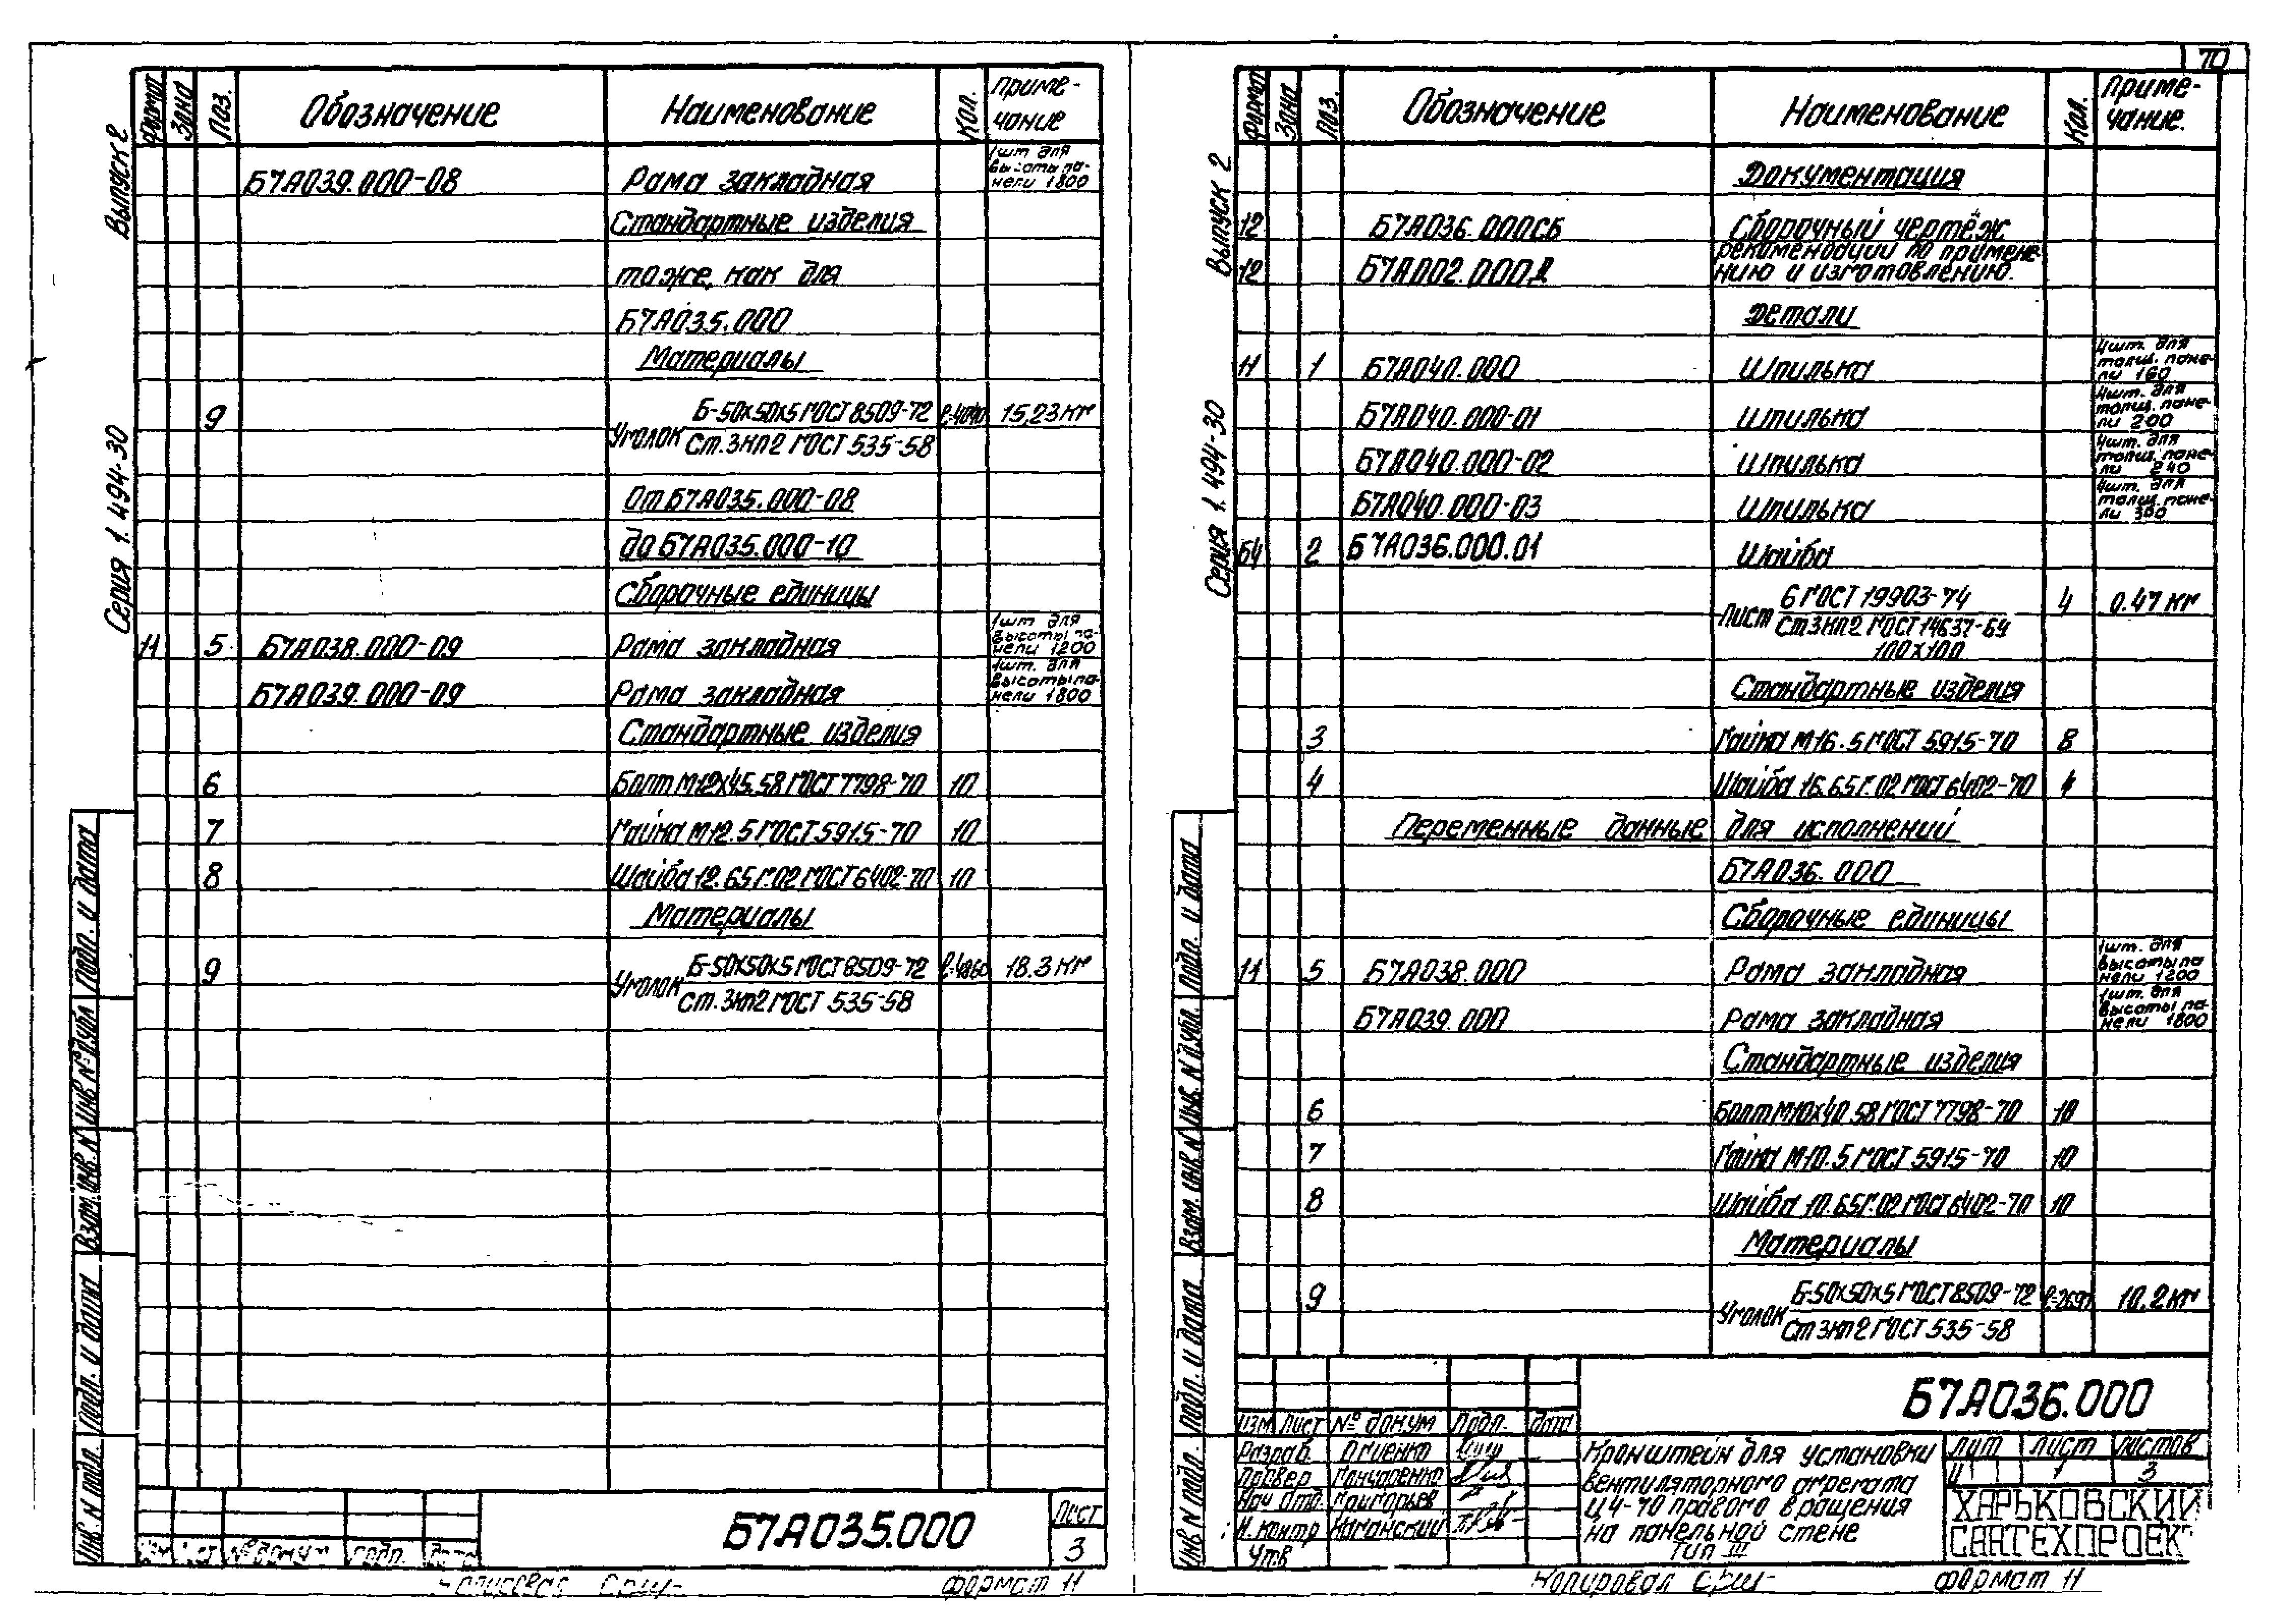 70
Выпуск 2
Серия 1.494-30
Формат Зона Поз. Обозначение Наименование Кол. Приме-
чание
Б7А039.000-08 Рама закладная 1шт для высоты па-нели 1800
Стандартные изделия
тоже, как для
Б7А035.000
Материалы
9 Уголок Б-50х50х5 ГОСТ 8509-72 15,23 кг
Ст.3кп2 ГОСТ 535-58
От Б7А035.000-08
до Б7А035.000-10
Сборочные единицы
11 5 Б7А038.000-09 Рама закладная 1шт для высоты па-нели 1200
Б7А039.000-09 Рама закладная 1шт. для высоты па-нели 1800
Стандартные изделия
6 Болт М12х45.58 ГОСТ 7798-70 10
7 Гайка М12.5 ГОСТ 5915-70 10
8 Шайба 12.65Г.02 ГОСТ 6402-70 10
Материалы
9 Уголок Б-50х50х5 ГОСТ 8509-72 ℓ=4860 18.3 кг
Ст.3кп2 ГОСТ 535-58
Подп. и дата
Инв. № дубл
Взам. инв. №
Подп. и дата
Инв. № подл.
Б7А035.000
Лист
3
Формат 11
Выпуск 2
Серия 1.494-30
Формат Зона Поз. Обозначение Наименование Кол. Приме-
чание.
Документация
12 Б7А036.000СБ Сборочный чертёж
12 Б7А002.000Д рекомендации по примене-
нию и изготовлению.
Детали
11 1 Б7А040.000 Шпилька 4шт. для толщ. пане-ли 160
Б7А040.000-01 Шпилька 4шт. для толщ. пане-ли 200
Б7А040.000-02 Шпилька 4шт. для толщ. пане-ли 240
Б7А040.000-03 Шпилька 4шт. для толщ. пане-ли 300
Б4 2 Б7А036.000.01 Шайба
Лист 6 ГОСТ 19903-74 4 0.47 кг
Ст3кп2 ГОСТ 14637-69
100х100
Стандартные изделия
3 Гайка М16.5 ГОСТ 5915-70 8
4 Шайба 16.65Г.02 ГОСТ 6402-70 4
Переменные данные для исполнений
Б7А036.000
Сборочные единицы
11 5 Б7А038.000 Рама закладная 1шт. для высоты па нели 1200
Б7А039.000 Рама закладная 1шт. для высоты па-нели 1800
Стандартные изделия
6 Болт М10х40.58 ГОСТ 7798-70 10
7 Гайка М10.5 ГОСТ 5915-70 10
8 Шайба 10.65Г.02 ГОСТ 6402-70 10
Материалы
9 Уголок Б-50х50х5 ГОСТ 8509-72 10,2 кг
Ст3кп2 ГОСТ 535-58
Подп. и дата
Инв. № дубл.
Взам. инв. №
Подп. и дата
Инв. № подл.
Б7А036.000
Изм Лист № докум Подп. Дата
Разраб. Огиенко
Провер Гончаренко
Нач. отд. Григорьев
Н. контр Каганский
Утв
Кронштейн для установки
вентиляторного агрегата
Ц4-70 правого вращения
на панельной стене
Тип III
Лит Лист Листов
И 1 3
ХАРЬКОВСКИЙ
САНТЕХПРОЕКТ
Копировал
Формат 11